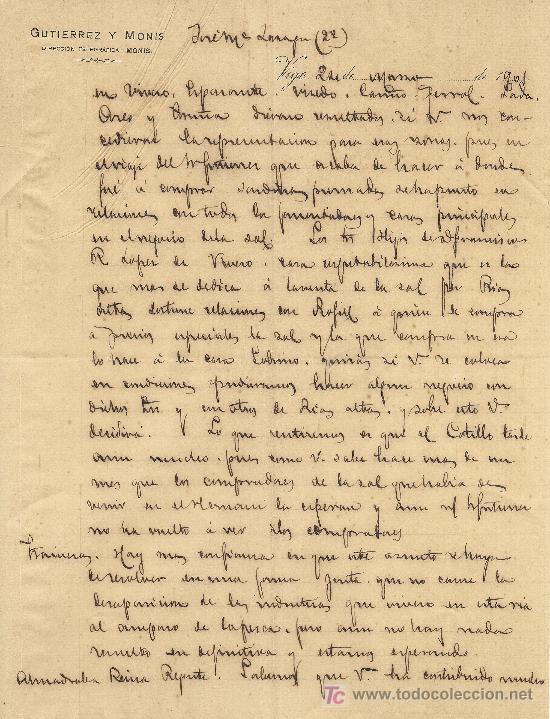 GUTIERREZ Y MONIS
DIRECCIÓN TELEGRÁFICA: MONIS.
José Mª (2ª)
Vigo 2 de Marzo de 1901
en Vivero, Vivedo, Cariño, Ferrol,
Ares y Coruña darian resultados si V. nos con-
cediera la representacion para esas zonas, pues en
el viaje del que acaba de hacer á donde
fué á comprar sardinas prensadas se ha puesto en
relaciones con todos los y casas principales
en el negocio de la sal. Los Sres Hijos de Francisco
R Lopez de Vivero, casa respetabilisima que es la
que mas se dedica á la venta de la sal por Rias
altas, relaciones con á quien le compra
á precios especiales la sal y la que compra en esa
lo hace á la casa quizás si V. se coloca
en condiciones pudieramos hacer algun negocio con
dichos Sres y con otros de Rias altas, y sobre esto V.
decidirá. Lo que sentiremos es que el tarde
aun mucho, pues como V. sabe hace mas de un
mes que los compradores de la sal que habia de
venir en el la esperan y aun el
no ha vuelto á ver á los compradores
Traineras. Hay mas confianza en que este asunto se haya
de resolver en una forma justa que no cause la
desaparicion de las industrias que viven en esta ria
al amparo de la pesca, pero aun no hay nada
resuelto en definitiva y estamos esperando.
Almadraba Reina Regente. Sabemos que V. ha contribuido mucho
TC www.todocoleccion.net